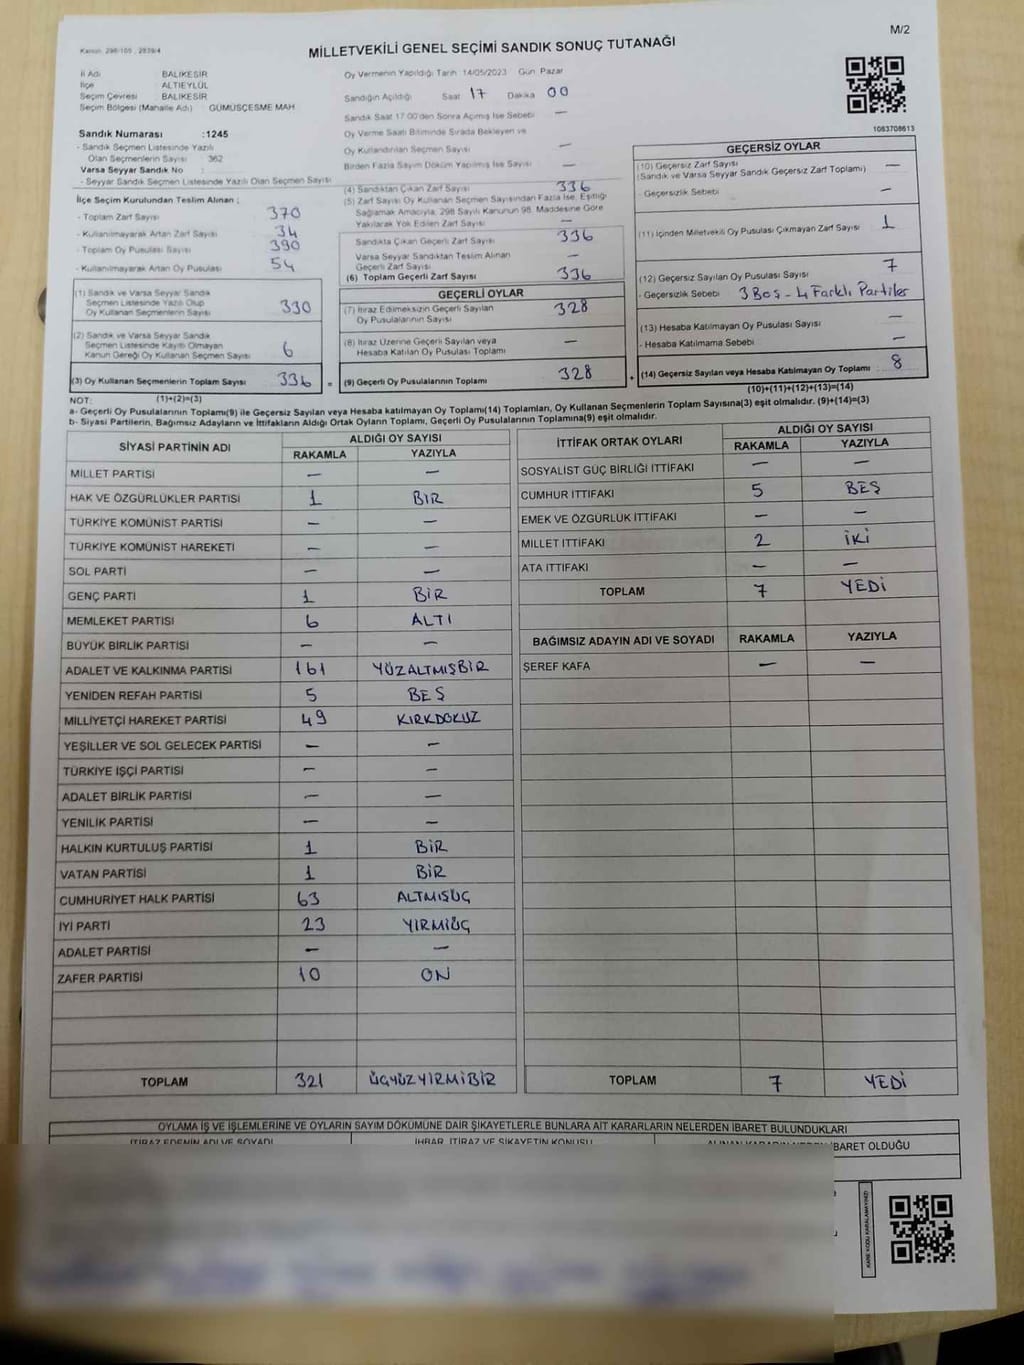 M/2
Kanun: 298/105 , 2839/4
MİLLETVEKİLİ GENEL SEÇİMİ SANDIK SONUÇ TUTANAĞI
İl Adı BALIKESİR
İlçe ALTIEYLÜL
Seçim Çevresi BALIKESİR
Seçim Bölgesi (Mahalle Adı) GÜMÜŞÇEŞME MAH
Sandık Numarası :1245
- Sandık Seçmen Listesinde Yazılı
Olan Seçmenlerin Sayısı 362
Varsa Seyyar Sandık No :
- Seyyar Sandık Seçmen Listesinde Yazılı Olan Seçmen Sayısı
İlçe Seçim Kurulundan Teslim Alınan ;
- Toplam Zarf Sayısı 370
- Kullanılmayarak Artan Zarf Sayısı 34
- Toplam Oy Pusulası Sayısı 390
- Kullanılmayarak Artan Oy Pusulası 54
(1) Sandık ve Varsa Seyyar Sandık
Seçmen Listesinde Yazılı Olup
Oy Kullanan Seçmenlerin Sayısı 330
(2) Sandık ve Varsa Seyyar Sandık
Seçmen Listesinde Kayıtlı Olmayan
Kanun Gereği Oy Kullanan Seçmen Sayısı 6
(3) Oy Kullanan Seçmenlerin Toplam Sayısı 336 =
Oy Vermenin Yapıldığı Tarih 14/05/2023 Gün Pazar
Sandığın Açıldığı Saat 17 Dakika 00
Sandık Saat 17.00'den Sonra Açılmış İse Sebebi —
Oy Verme Saati Bitiminde Sırada Bekleyen ve
Oy Kullandırılan Seçmen Sayısı —
Birden Fazla Sayım Döküm Yapılmış İse Sayısı —
(4) Sandıktan Çıkan Zarf Sayısı 336
(5) Zarf Sayısı Oy Kullanan Seçmen Sayısından Fazla İse, Eşitliği
Sağlamak Amacıyla, 298 Sayılı Kanunun 98. Maddesine Göre
Yakılarak Yok Edilen Zarf Sayısı —
Sandıkta Çıkan Geçerli Zarf Sayısı 336
Varsa Seyyar Sandıktan Teslim Alınan
Geçerli Zarf Sayısı —
(6) Toplam Geçerli Zarf Sayısı 336
GEÇERLİ OYLAR
(7) İtiraz Edilmeksizin Geçerli Sayılan
Oy Pusulalarının Sayısı 328
(8) İtiraz Üzerine Geçerli Sayılan veya
Hesaba Katılan Oy Pusulası Toplamı —
(9) Geçerli Oy Pusulalarının Toplamı 328 +
1063708613
GEÇERSİZ OYLAR
(10) Geçersiz Zarf Sayısı
(Sandık ve Varsa Seyyar Sandık Geçersiz Zarf Toplamı) —
- Geçersizlik Sebebi —
(11) İçinden Milletvekili Oy Pusulası Çıkmayan Zarf Sayısı 1
(12) Geçersiz Sayılan Oy Pusulası Sayısı 7
- Geçersizlik Sebebi 3 Boş - 4 Farklı Partiler
(13) Hesaba Katılmayan Oy Pusulası Sayısı —
- Hesaba Katılmama Sebebi —
(14) Geçersiz Sayılan veya Hesaba Katılmayan Oy Toplamı 8
(10)+(11)+(12)+(13)=(14)
NOT: (1)+(2)=(3)
a- Geçerli Oy Pusulalarının Toplamı(9) ile Geçersiz Sayılan veya Hesaba katılmayan Oy Toplamı(14) Toplamları, Oy Kullanan Seçmenlerin Toplam Sayısına(3) eşit olmalıdır. (9)+(14)=(3)
b- Siyasi Partilerin, Bağımsız Adayların ve İttifakların Aldığı Ortak Oyların Toplamı, Geçerli Oy Pusulalarının Toplamına(9) eşit olmalıdır.
SİYASİ PARTİNİN ADI ALDIĞI OY SAYISI
RAKAMLA YAZIYLA
MİLLET PARTİSİ — —
HAK VE ÖZGÜRLÜKLER PARTİSİ 1 BİR
TÜRKİYE KOMÜNİST PARTİSİ — —
TÜRKİYE KOMÜNİST HAREKETİ — —
SOL PARTİ — —
GENÇ PARTİ 1 BİR
MEMLEKET PARTİSİ 6 ALTI
BÜYÜK BİRLİK PARTİSİ — —
ADALET VE KALKINMA PARTİSİ 161 YÜZALTMIŞBİR
YENİDEN REFAH PARTİSİ 5 BEŞ
MİLLİYETÇİ HAREKET PARTİSİ 49 KIRKDOKUZ
YEŞİLLER VE SOL GELECEK PARTİSİ — —
TÜRKİYE İŞÇİ PARTİSİ — —
ADALET BİRLİK PARTİSİ — —
YENİLİK PARTİSİ — —
HALKIN KURTULUŞ PARTİSİ 1 BİR
VATAN PARTİSİ 1 BİR
CUMHURİYET HALK PARTİSİ 63 ALTMIŞÜÇ
İYİ PARTİ 23 YİRMİÜÇ
ADALET PARTİSİ — —
ZAFER PARTİSİ 10 ON
TOPLAM 321 ÜÇYÜZYİRMİBİR
İTTİFAK ORTAK OYLARI ALDIĞI OY SAYISI
RAKAMLA YAZIYLA
SOSYALİST GÜÇ BİRLİĞİ İTTİFAKI — —
CUMHUR İTTİFAKI 5 BEŞ
EMEK VE ÖZGÜRLÜK İTTİFAKI — —
MİLLET İTTİFAKI 2 İKİ
ATA İTTİFAKI — —
TOPLAM 7 YEDİ
BAĞIMSIZ ADAYIN ADI VE SOYADI RAKAMLA YAZIYLA
ŞEREF KAFA — —
TOPLAM 7 YEDİ
OYLAMA İŞ VE İŞLEMLERİNE VE OYLARIN SAYIM DÖKÜMÜNE DAİR ŞİKAYETLERLE BUNLARA AİT KARARLARIN NELERDEN İBARET BULUNDUKLARI
İTİRAZ EDENİN ADI VE SOYADI İHBAR, İTİRAZ VE ŞİKAYETİN KONUSU ALINAN KARARIN NEDEN İBARET OLDUĞU
KARE KODU KARALAMAYINIZ!